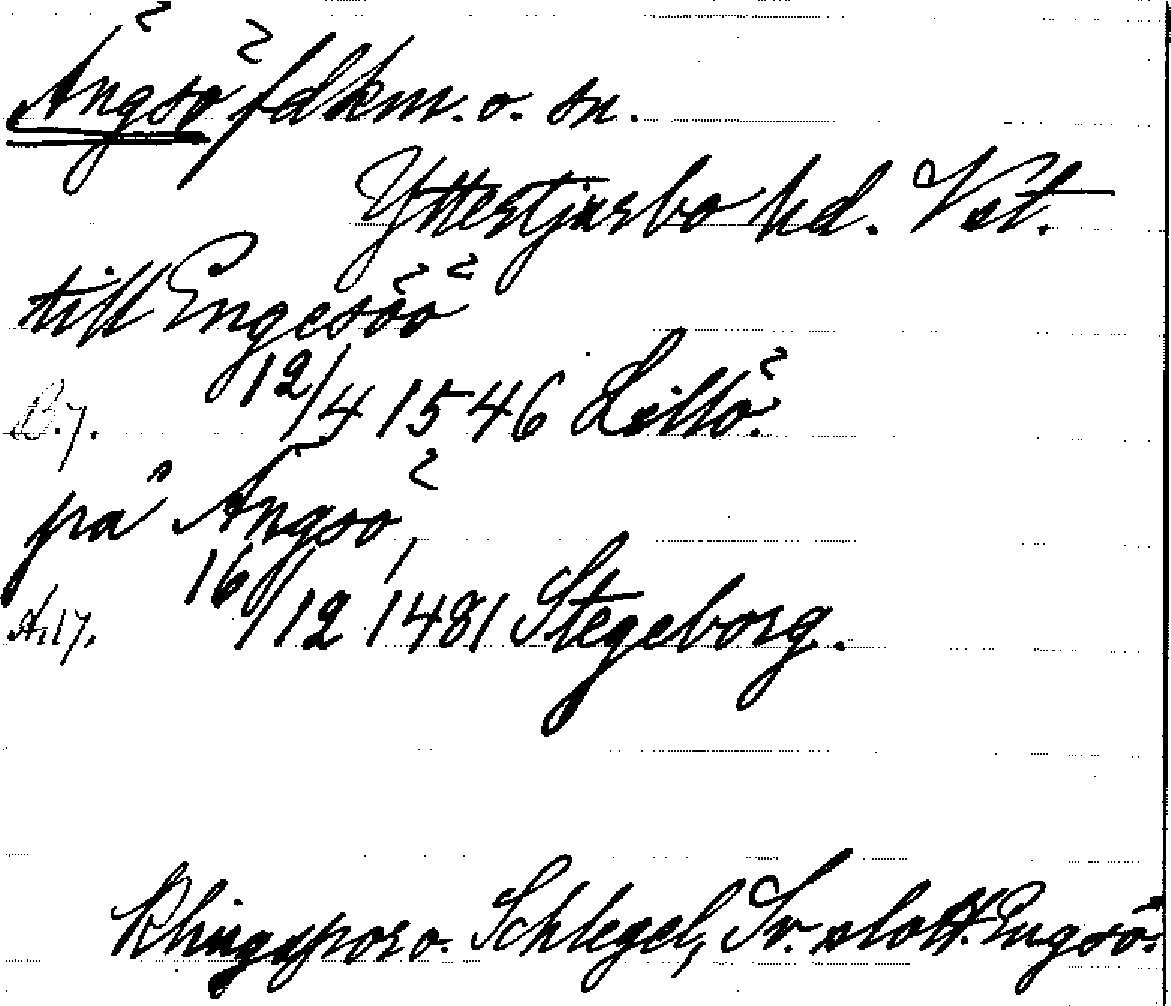 Ängsö fdkm. o. sn.
Yttertjurbo hd. Vst.
till Engesöö
B.7. 12/4 1546 Lillö.
på Ängsö,
A.17. 16/12 1481 Stegeborg.
Klingspor o. Schlegel, Sv. slott. Engsö.